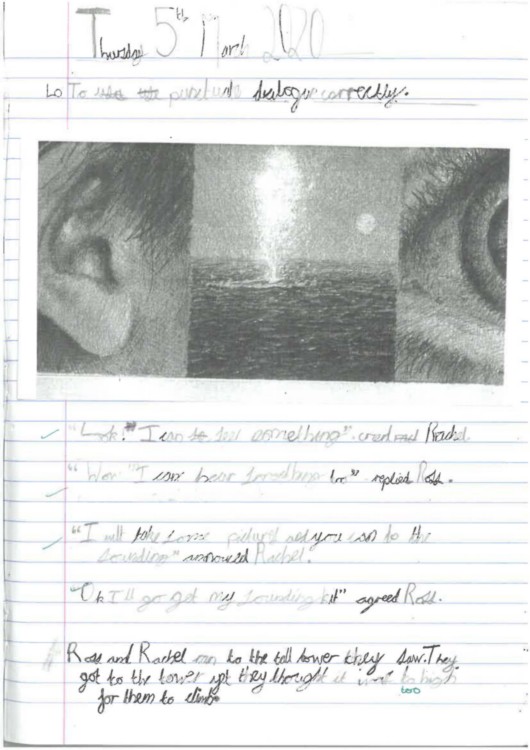 Thursday 5th March 2020
Lo To use the punctuate dialogue correctly.
"Look!" "I can see something" cried Rachel.
"Wow" "I can hear something too" replied Ross.
"I will take some pictures and you can do the
sounding" announced Rachel.
"Ok I'll go get my sounding kit" agreed Ross.
Ross and Rachel ran to the tall tower they saw. They
got to the tower yet they thought it was to high
too
for them to climb.